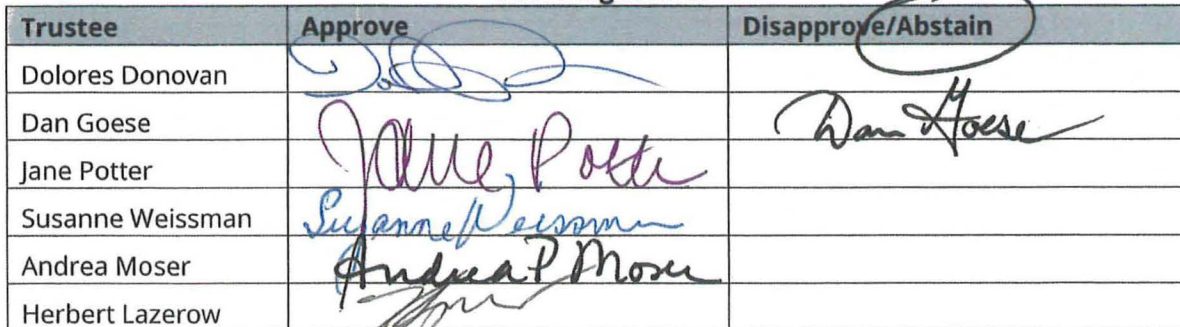 Trustee Approve Disapprove/Abstain
Dolores Donovan
Dan Goese Dan Goese
Jane Potter Jane Potter
Susanne Weissman Susanne Weissman
Andrea Moser Andrea P Moser
Herbert Lazerow